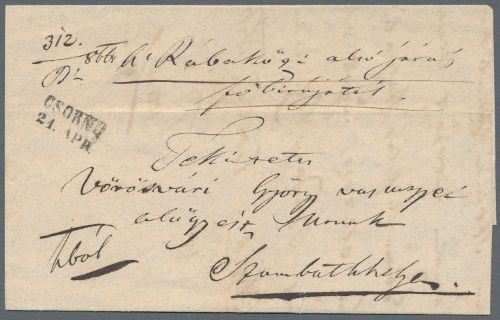 312.
A' Rábaközi alsó járás
főbirájától.
CSORNA
21. APR.
Tekintetes
Vörösvári György vasmegyei
alügyész Urnak
hból
Szombathhelyen.